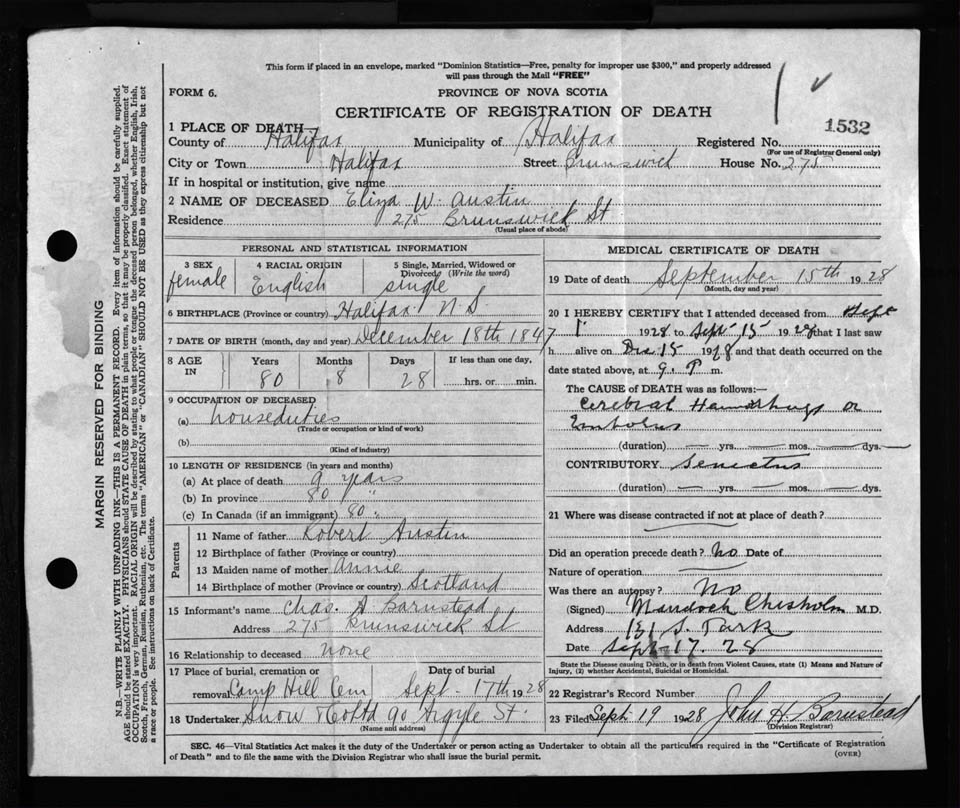 This form if placed in an envelope, marked "Dominion Statistics—Free, penalty for improper use $300," and properly addressed
will pass through the Mail "FREE"
FORM 6.
PROVINCE OF NOVA SCOTIA
CERTIFICATE OF REGISTRATION OF DEATH
1532
1 PLACE OF DEATH
County of Halifax Municipality of Halifax Registered No.
(For use of Registrar General only)
City or Town Halifax Street Brunswick House No. 275
If in hospital or institution, give name
2 NAME OF DECEASED Eliza W. Austin
Residence 275 Brunswick St
(Usual place of abode)
PERSONAL AND STATISTICAL INFORMATION
3 SEX female
4 RACIAL ORIGIN English
5 Single, Married, Widowed or Divorced (Write the word) single
6 BIRTHPLACE (Province or country) Halifax N.S.
7 DATE OF BIRTH (month, day and year) December 18th 1847
8 AGE IN Years 80 Months 8 Days 28 If less than one day, ....hrs. or ....min.
9 OCCUPATION OF DECEASED
(a) houseduties
(Trade or occupation or kind of work)
(b)
(Kind of industry)
10 LENGTH OF RESIDENCE (in years and months)
(a) At place of death 9 years
(b) In province 80 "
(c) In Canada (if an immigrant) 80 "
Parents
11 Name of father Robert Austin
12 Birthplace of father (Province or country)
13 Maiden name of mother Annie
14 Birthplace of mother (Province or country) Scotland
15 Informant's name Chas. A Barnstead
Address 275 Brunswick St
16 Relationship to deceased none
17 Place of burial, cremation or removal Camp Hill Cem Date of burial Sept. 17th 1928
18 Undertaker Snow & Co Ltd 90 Argyle St.
(Name and address)
MEDICAL CERTIFICATE OF DEATH
19 Date of death September 15th 1928
(Month, day and year)
20 I HEREBY CERTIFY that I attended deceased from Sept
1 1928 to Sept 15 1928 that I last saw
h......alive on 15 1928 and that death occurred on the
date stated above, at 9. P m.
The CAUSE of DEATH was as follows:—
Cerebral Hemorrhage or
Embolus
(duration) — yrs. — mos. — dys.
CONTRIBUTORY Senectus
(duration) — yrs. — mos. — dys.
21 Where was disease contracted if not at place of death?
Did an operation precede death? No Date of
Nature of operation
Was there an autopsy? No
(Signed) Murdoch Chisholm M.D.
Address 131 S. Park
Date Sept. 17. 28
State the Disease causing Death, or in death from Violent Causes, state (1) Means and Nature of
Injury, (2) whether Accidental, Suicidal or Homicidal.
22 Registrar's Record Number
23 Filed Sept 19 1928 John H. Barnstead
(Division Registrar)
SEC. 46—Vital Statistics Act makes it the duty of the Undertaker or person acting as Undertaker to obtain all the particulars required in the "Certificate of Registration
of Death" and to file the same with the Division Registrar who shall issue the burial permit.
(OVER)
MARGIN RESERVED FOR BINDING
N.B.—WRITE PLAINLY WITH UNFADING INK—THIS IS A PERMANENT RECORD. Every item of information should be carefully supplied.
AGE should be stated EXACTLY. PHYSICIANS should STATE CAUSE OF DEATH in plain terms, so that it may be properly classified. Exact statement of
OCCUPATION is very important. RACIAL ORIGIN will be described by stating to what people or tongue the deceased person belonged, whether English, Irish,
Scotch, French, German, Russian, Ruthenian, etc. The terms "AMERICAN" or "CANADIAN" SHOULD NOT BE USED as they express citizenship but not
a race or people. See instructions on back of Certificate.